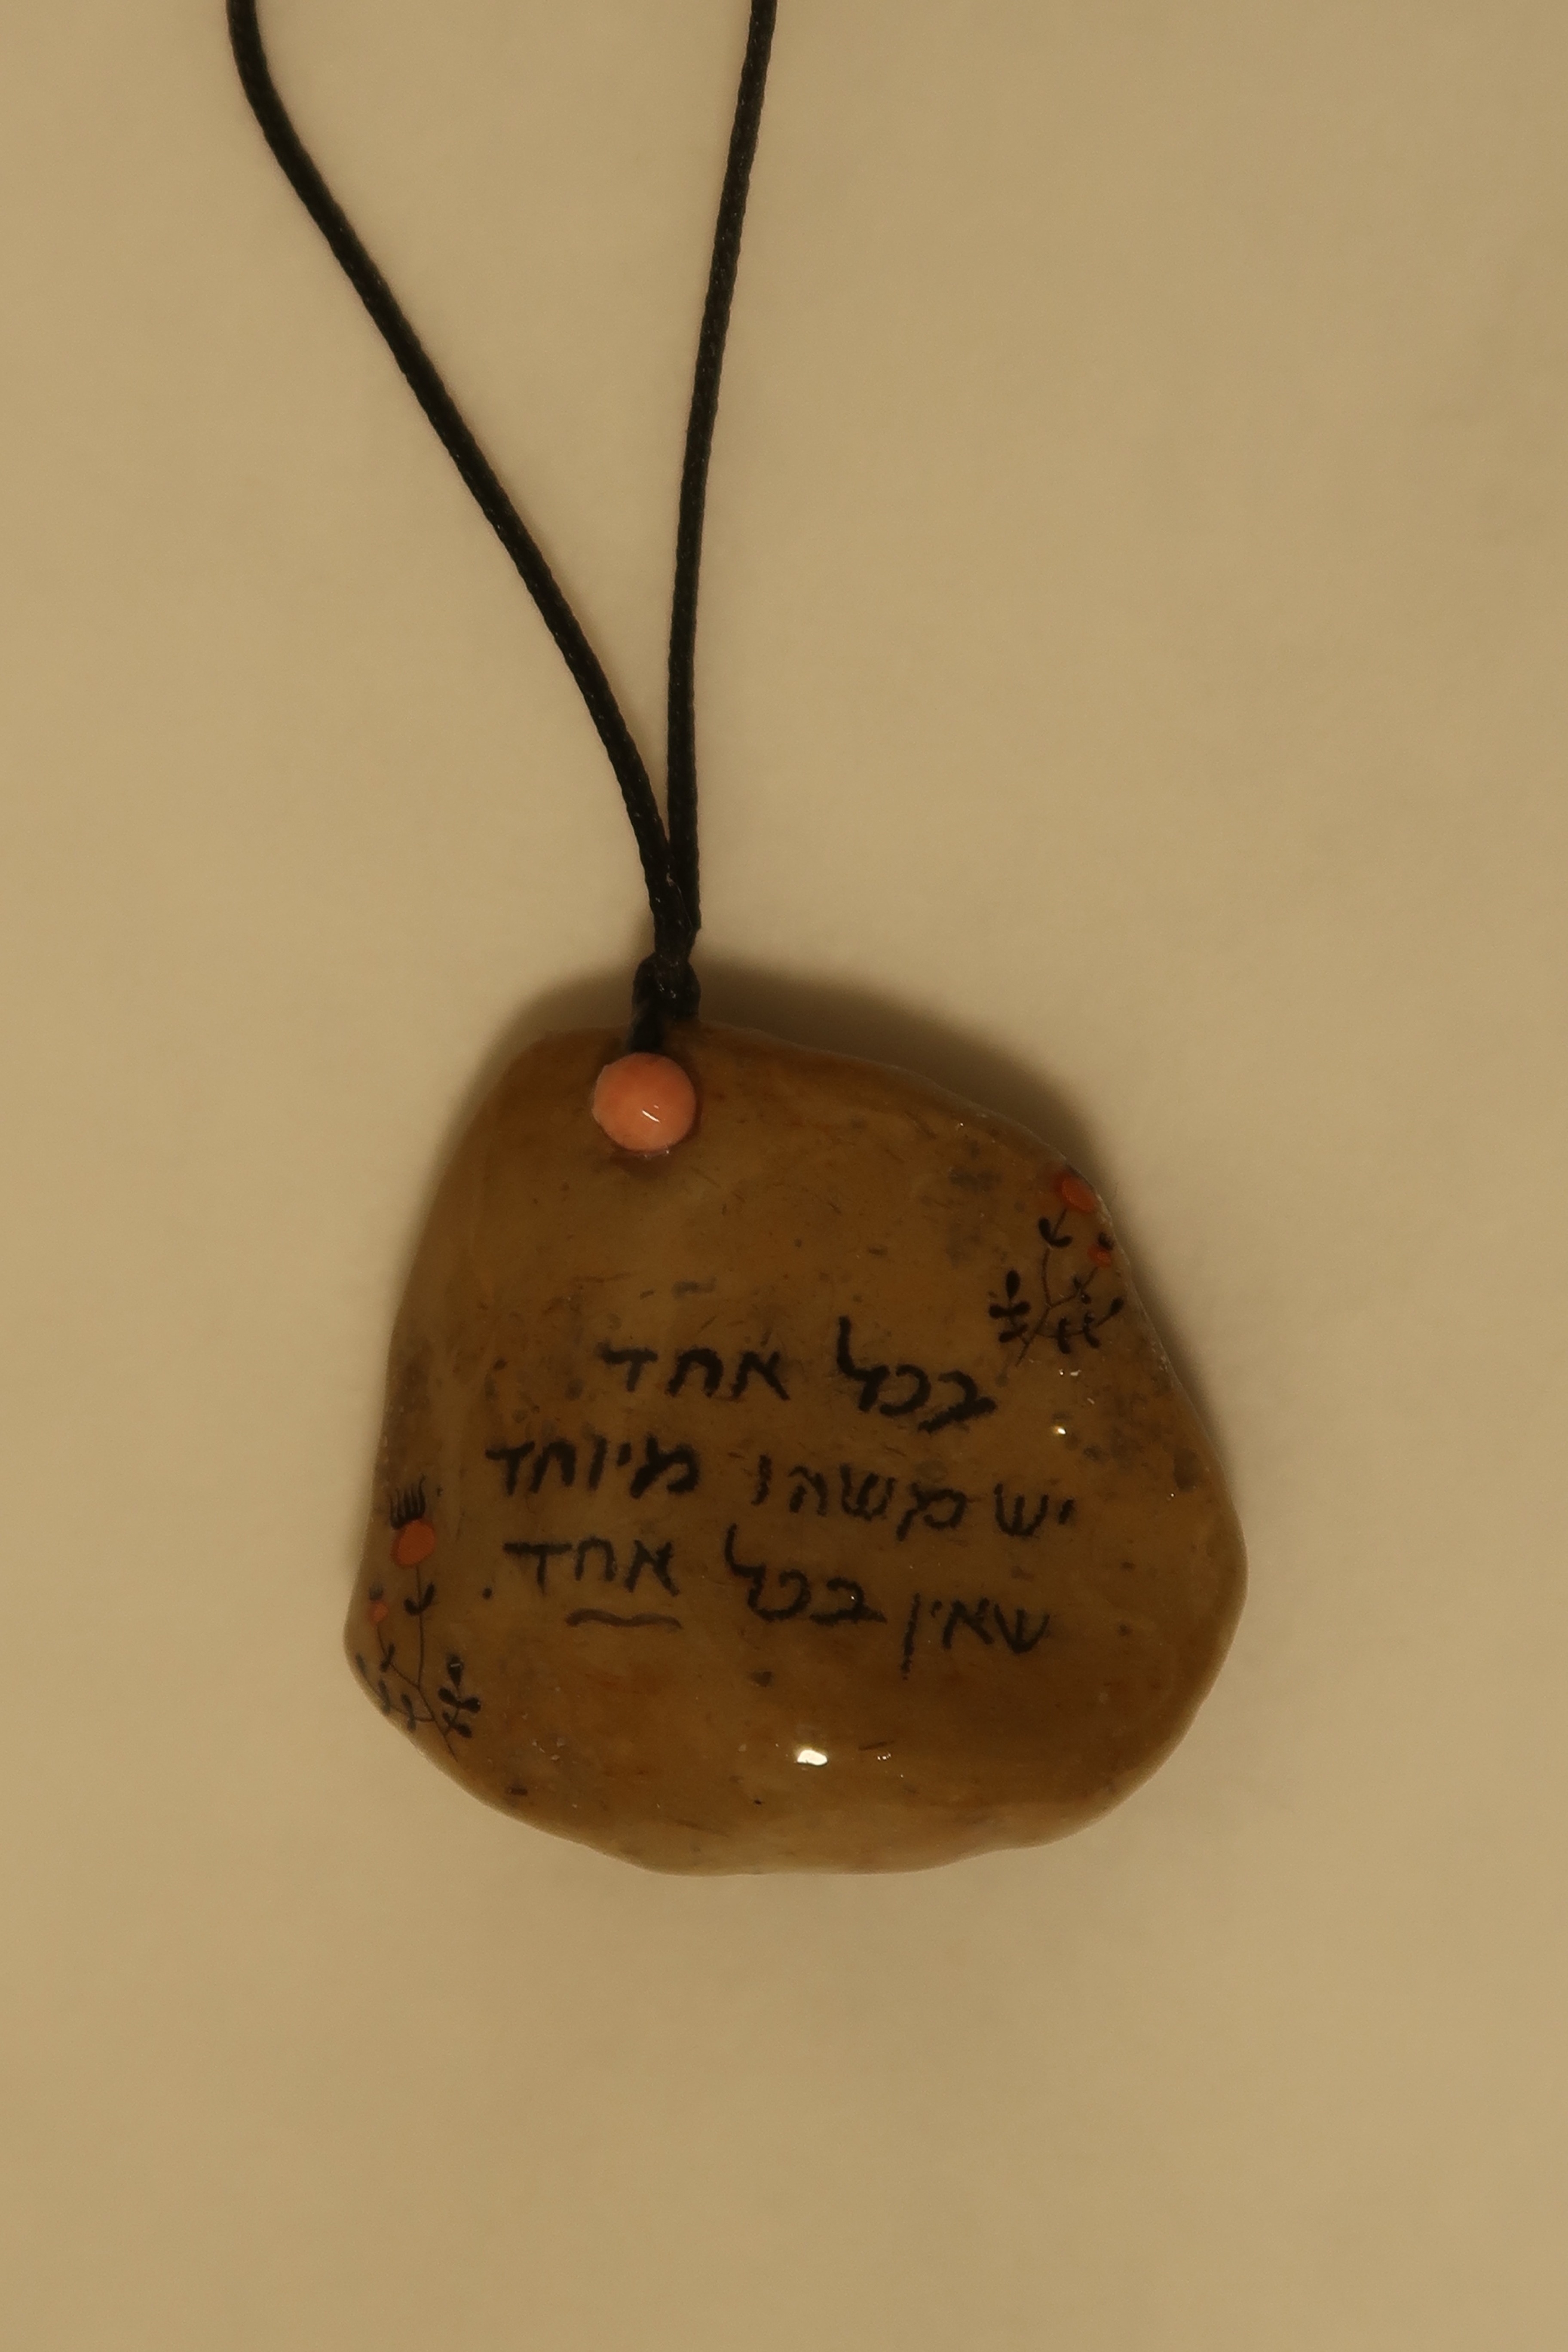 בכל אחד
יש משהו מיוחד
שאין בכל אחד.